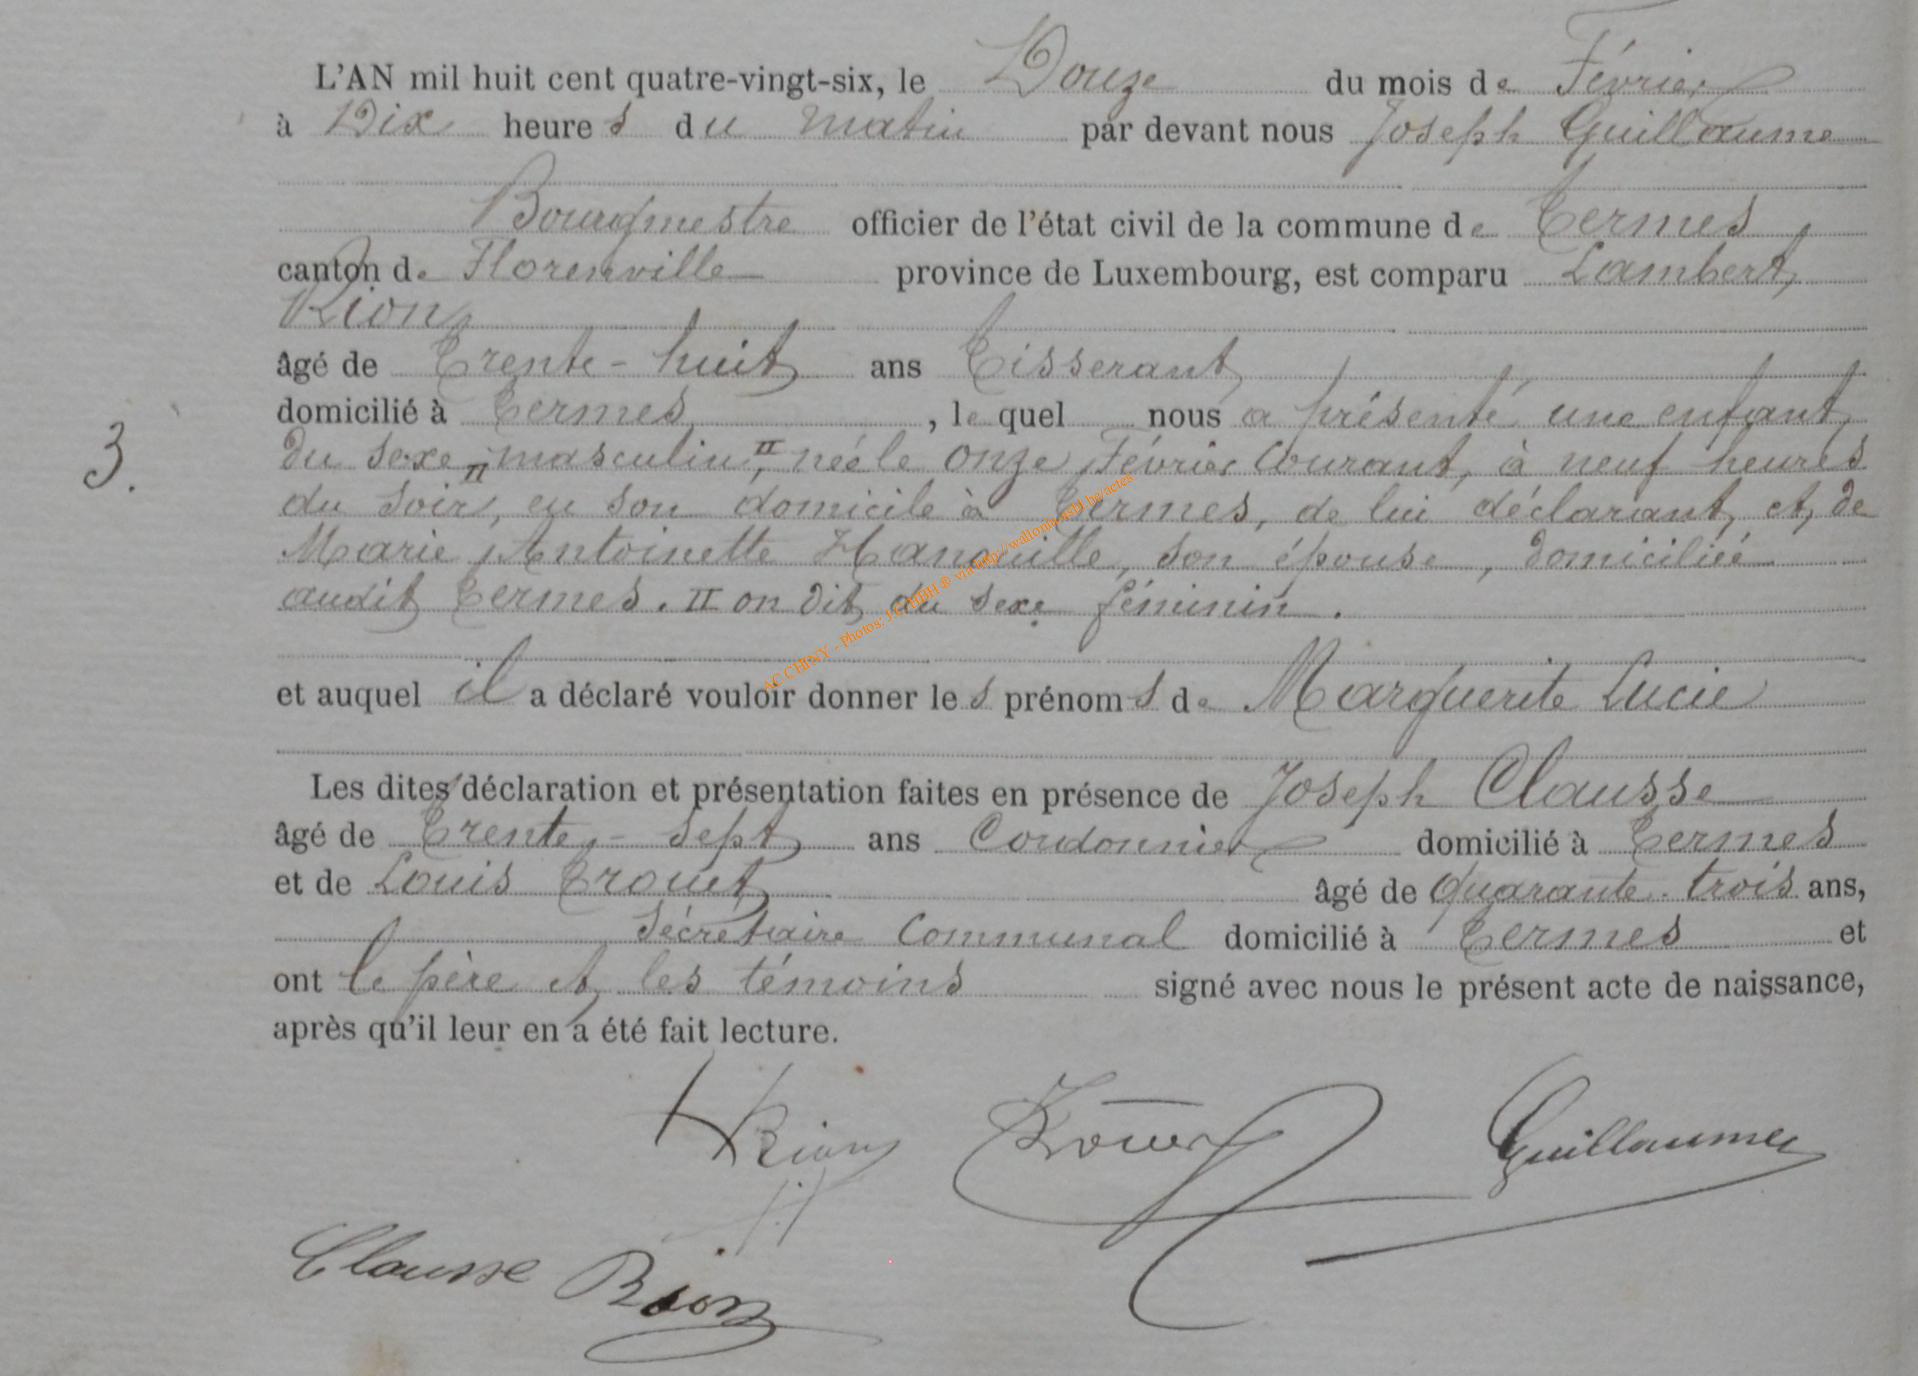 L'AN mil huit cent quatre-vingt-six, le Douze du mois de Février
à Dix heures du matin par devant nous Joseph Guillaume
Bourgmestre officier de l'état civil de la commune de Termes
canton de Florenville province de Luxembourg, est comparu Lambert
Rion
âgé de Trente-huit ans Tisserant
domicilié à Termes, lequel nous a présenté une enfant
3. du sexe II masculin II, néele onze Février Courant, à neuf heures
du soir, en son domicile à Termes, de lui déclarant et de
Marie Antoinette Hanouille, son épouse, domiciliée
audit Termes. II on dit du sexe féminin.
et auquel il a déclaré vouloir donner les prénoms de Marguerite Lucie
Les dites déclaration et présentation faites en présence de Joseph Clausse
âgé de Trente-sept ans Cordonnier domicilié à Termes
et de Louis Trouet âgé de Quarante-trois ans,
Sécrétaire Communal domicilié à Termes et
ont le père et les témoins signé avec nous le présent acte de naissance,
après qu'il leur en a été fait lecture.
Rion Trouet Guillaume
Clausse Rion
AC CHINY - Photos: via http://wallonia.asbl.be/actes